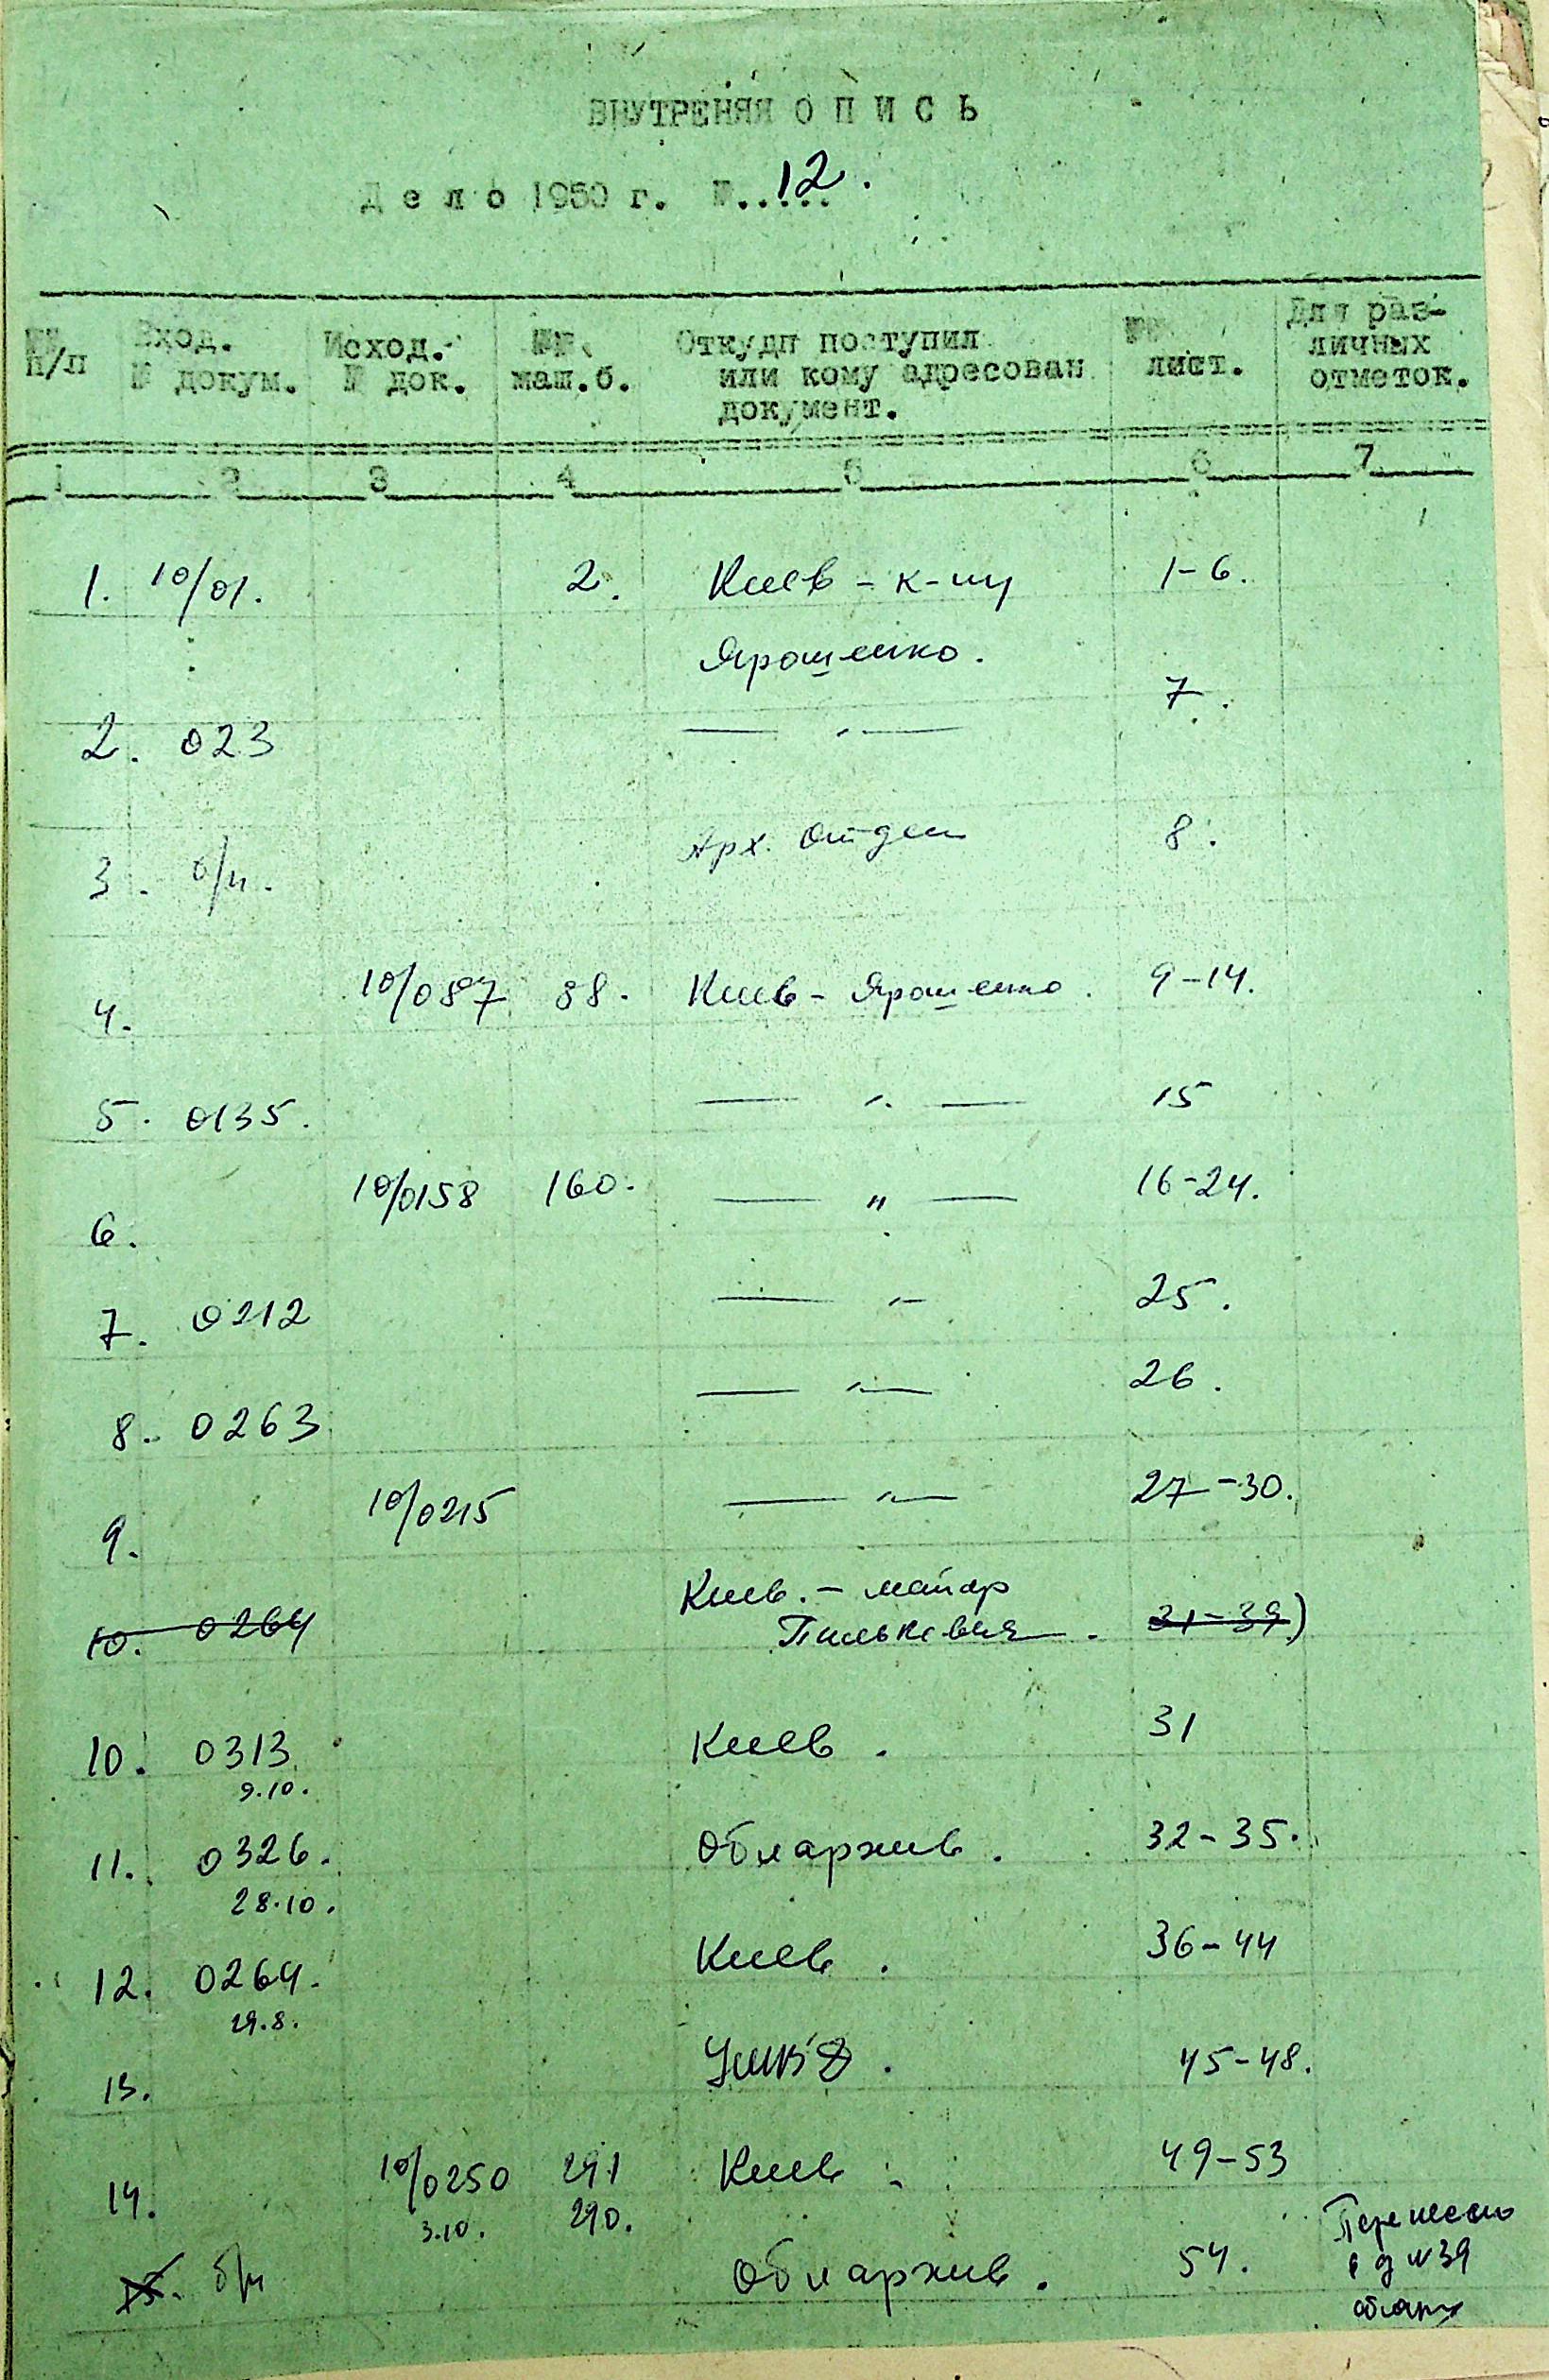 ВНУТРЕНЯЯ О П И С Ь
Д е л о 1950 г. №..12...
№№ п/п Вход. № докум. Исход. № док. №№ маш.б. Откуда поступил или кому адресован документ. №№ лист. Для различных отметок.
1 2 3 4 5 6 7
1. 10/01. 2. Киев - к-ну 1-6.
Ярошенко.
2. 023 — " — 7.
3. б/н. Арх. Отдел 8.
4. 10/087 88. Киев - Ярошенко. 9-14.
5. 0135. — " — 15
6. 10/0158 160. — " — 16-24.
7. 0212 — " — 25.
8. 0263 — " — 26.
9. 10/0215 — " — 27-30.
10. 0264 Киев. - майор 31-39)
10. 0313 Киев. 31
9.10.
11. 0326. Облархив. 32-35.
28.10.
12. 0264. Киев. 36-44
29.8.
13. 45-48.
14. 10/0250 291 Киев. 49-53
3.10. 290.
15. б/н Облархив. 54. Перенесено
в д №39